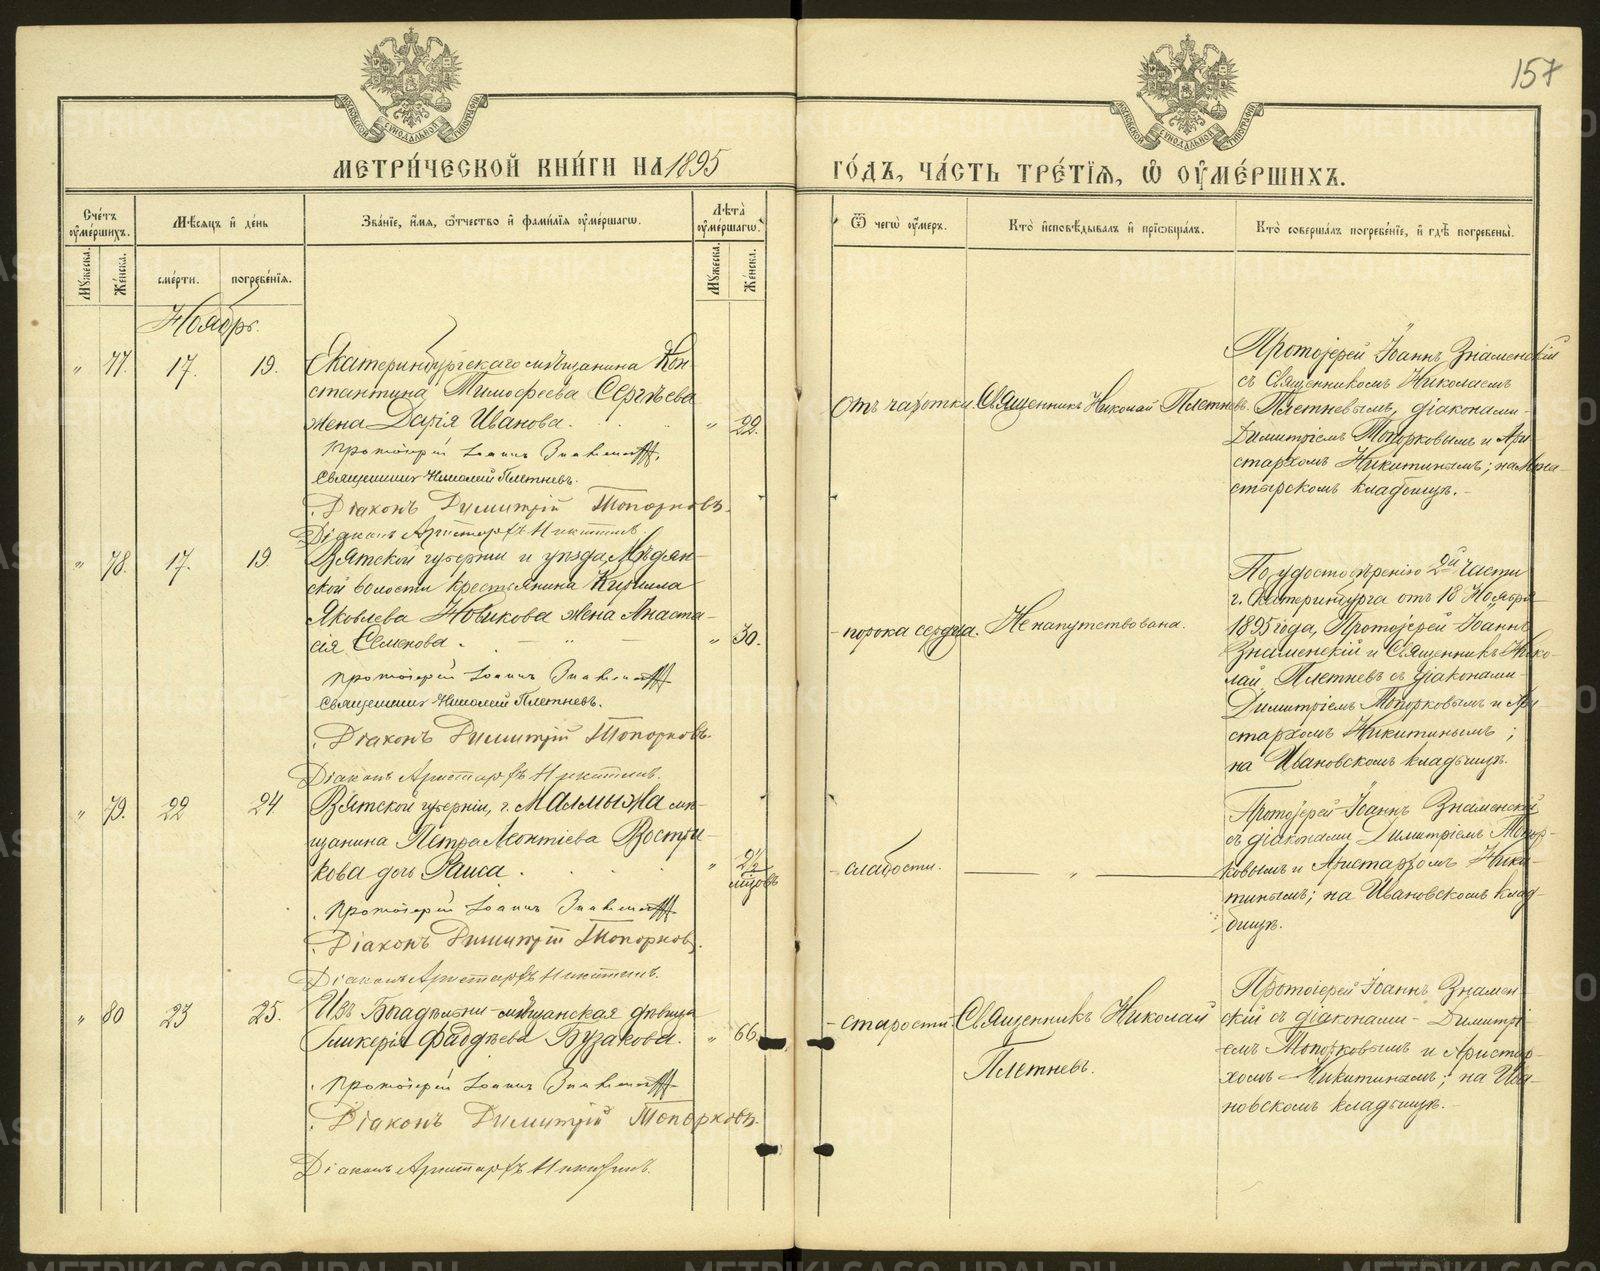 157
МЕТРИ́ЧЕСКОЙ КНИ́ГИ НА 1895 ГО́ДЪ, ЧА́СТЬ ТРЕ́ТЇѦ, Ѡ҆ ОУ҆МЕ́РШИХЪ.
Сче́тъ оу҆ме́ршихъ.
Мѣ́сѧцъ и҆ де́нь
Зва́нїе, и҆́мѧ, ѻ҆́тчество и҆ фами́лїѧ оу҆ме́ршагѡ.
Лѣ́та оу҆ме́ршагѡ.
Ѿ чегѡ̀ оу҆́меръ.
Кто̀ и҆сповѣ́дывалъ и҆ прїѡбща́лъ.
Кто̀ соверша́лъ погребе́нїе, и҆ гдѣ̀ погребены̀.
Мꙋ́жеска.
Же́нска.
сме́рти.
погребе́нїѧ.
Мꙋ́жеска.
Же́нска.
Ноябрь.
" 77. 17. 19.
Екатеринбургскаго мѣщанина Кон-
стантина Тимофеева Сергѣева
жена Дарія Иванова. " 22.
Протоіерей Іоаннъ Знаменскій
Священникъ Николай Плетневъ.
Діаконъ Димитрій Топорковъ.
Діаконъ Аристархъ Никитинъ.
Отъ чахотки.
Священникъ Николай Плетневъ.
Протоіерей Іоаннъ Знаменскій
съ Священникомъ Николаемъ
Плетневымъ, діаконами-
Димитріемъ Топорковымъ и Ари-
стархомъ Никитинымъ; на Мона-
стырскомъ кладбищѣ.
" 78. 17. 19.
Вятской губерніи и уѣзда, Мѣдян-
ской волости крестьянина Кирилла
Яковлева Новикова жена Анаста-
сія Семенова. " 30.
Протоіерей Іоаннъ Знаменскій
Священникъ Николай Плетневъ.
Діаконъ Димитрій Топорковъ.
Діаконъ Аристархъ Никитинъ.
порока сердца.
Не напутствована.
По удостовѣренію 2й части
г. Екатеринбурга отъ 18 Ноября
1895 года, Протоіерей Іоаннъ
Знаменскій и Священникъ Нико-
лай Плетневъ съ діаконами
Димитріемъ Топорковымъ и Ари-
стархомъ Никитинымъ;
на Ивановскомъ кладбищѣ.
" 79. 22 24
Вятской губерніи, г. Малмыжа мѣ-
щанина Петра Леонтіева Востри-
кова дочь Раиса. " 2½ мѣсцовъ
Протоіерей Іоаннъ Знаменскій
Діаконъ Димитрій Топорковъ.
Діаконъ Аристархъ Никитинъ.
слабости.
— " —
Протоіерей Іоаннъ Знаменскій
съ діаконами Димитріемъ Топор-
ковымъ и Аристархомъ Ники-
тинымъ; на Ивановскомъ клад-
бищѣ.
" 80 23 25.
Изъ Богадѣльни - мѣщанская дѣвица
Гликерія Фаддѣева Бузакова. " 66.
Протоіерей Іоаннъ Знаменскій
Діаконъ Димитрій Топорковъ.
Діаконъ Аристархъ Никитинъ.
старости
Священникъ Николай
Плетневъ.
Протоіерей Іоаннъ Знамен-
скій съ діаконами - Димитрі-
емъ Топорковымъ и Аристар-
хомъ Никитинымъ; на Ива-
новскомъ кладбищѣ.